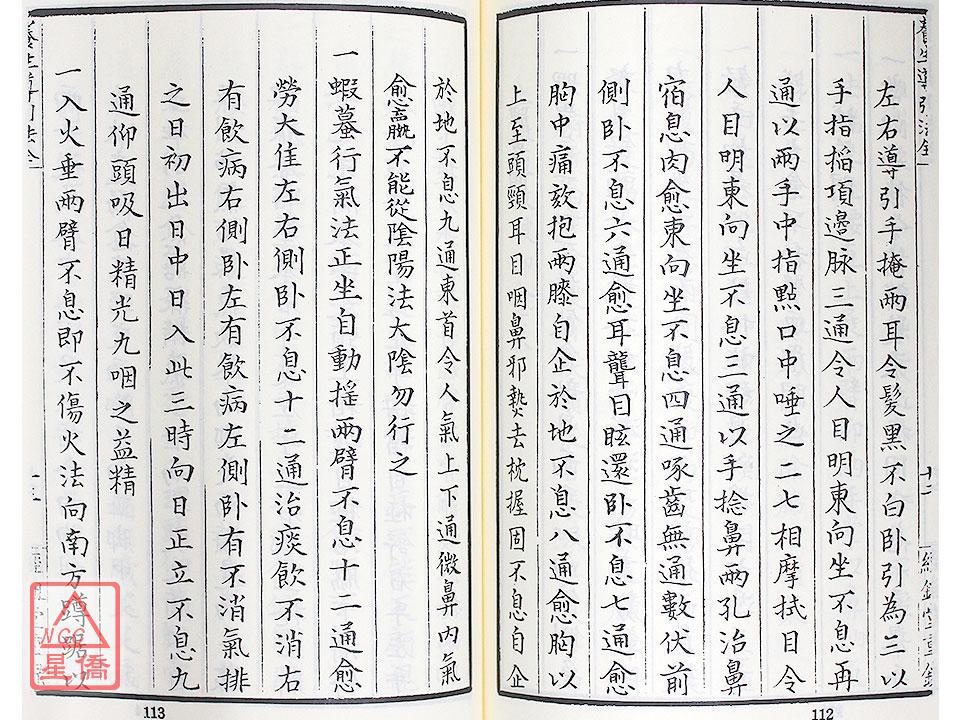 左右導引手掩兩耳令髮黑不白卧引為三以
手指搯項邊脉三通令人目明東向坐不息再
通以兩手中指點口中唾之二七相摩拭目令
人目明東向坐不息三通以手捻鼻兩孔治鼻
宿息肉愈東向坐不息四通啄齒無通數伏前
側卧不息六通愈耳聾目眩還卧不息七通愈
胸中痛欬抱兩膝自企於地不息八通愈胸以
上至頭頸耳目咽鼻邪𤍠去枕握固不息自企
112
於地不息九通東首令人氣上下通微鼻內氣
愈羸不能從陰陽法大陰勿行之
一蝦蟇行氣法正坐自動搖兩臂不息十二通愈
勞大隹左右側卧不息十二通治痰飲不消右
有飲病右側卧左有飲病左側卧有不消氣排
之日初出日中日入此三時向日正立不息九
通仰頭吸日精光九咽之益精
一入火垂兩臂不息即不傷火法向南方蹲踞以
113
NCC
星僑